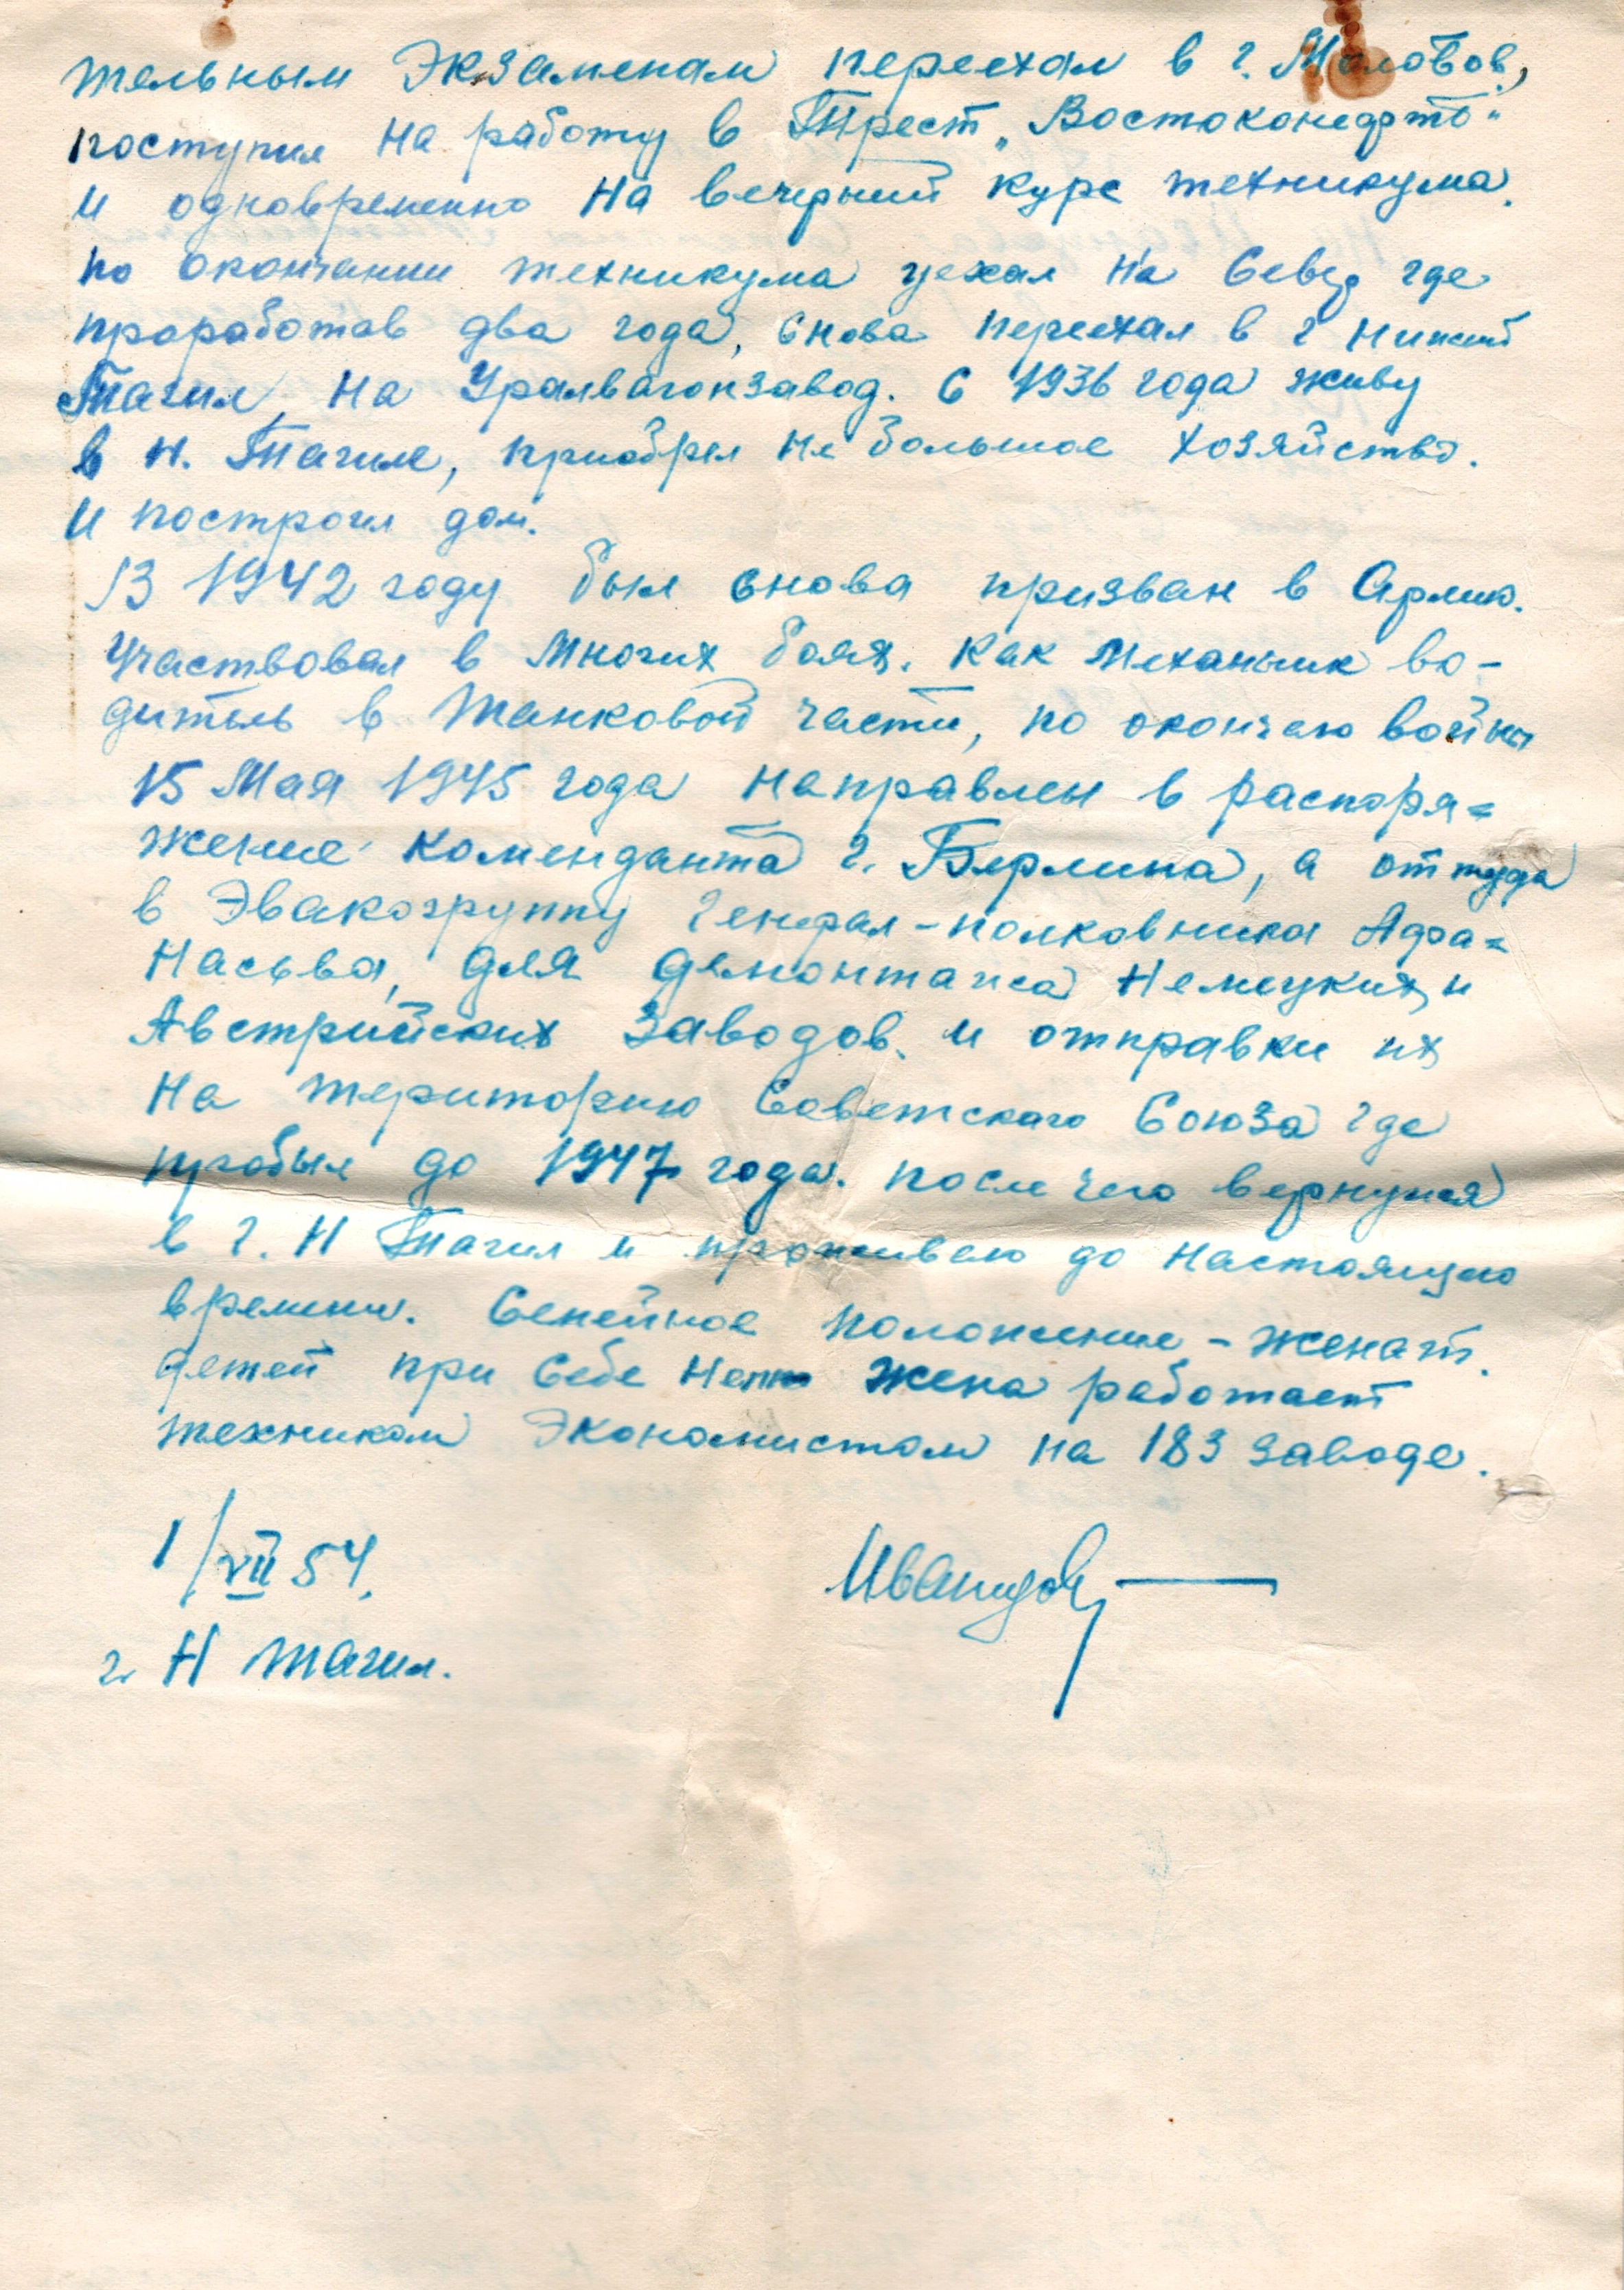 тельным Экзаменам переехал в г. Молотов,
поступил на работу в Трест „Востоконефть"
и одновременно на вечерний курс техникума.
по окончании техникума уехал на Север где
проработав два года, снова переехал в г Нижний
Тагил, на Уралвагонзавод. С 1936 года живу
в Н. Тагиле, приобрел не большое хозяйство.
и построил дом.
В 1942 году был снова призван в Армию.
Участвовал в многих боях. как механик во-
дитель в танковой части, по окончаю войны
15 Мая 1945 года направлен в распоря=
жение коменданта г. Берлина, а оттуда
в Эвакогруппу Генерал-полковника Афа=
насьва, для демонтажа Немецких и
Австрийских заводов. и отправки их
на територию Советского Союза где
пробыл до 1947 года. после чего вернулся
в г. Н Тагил и проживаю до настоящего
времени. Семейное положение - женат.
детей при себе нет жена работает
техником экономистом на 183 заводе.
1/VII 54.
Иванцов
г. Н Тагил.